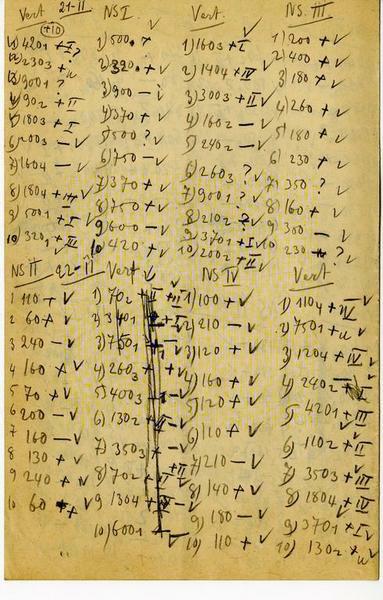 Vert 21-II NS I. Vert. NS. III
(+10)
1) 4201 + I 1) 500. ? 1) 1603 + I 1) 200 + √
2) 2303 + 2) 320. + √ 2) 1404 + IV √ 2) 400 + √
3) 9001 ? 3) 900 – i 3) 3003 + II √ 3) 180 + √
4) 902 + II 4) 370 + √ 4) 1602 – √ 4) 260 + √
5) 1803 + I 5) 500 ? √ 5) 2402 – √ 5) 180 + √
6) 2003 – √ 6) 750 – √ 6) 2603 ? √ 6) 230 + √
7) 1604 – √ 7) 370 + √ 7) 9001 ? √ 7) 350 ?
8) 1804 + III √ 8) 750 + √ 8) 2102 ? √ 8) 160 + √
9) 5001 + I √ 9) 600 – √ 9) 3701 + I √ 9) 300 – √
10) 3201 + III 10) 420 + √ 10) 2002 + II √ 10) 230 – ?
NS II 22-II Vert √ NS IV Vert
1 110 + √ 1) 702 + II √ 1) 100 + √ 1) 1104 + IV √
2 60 + √ 2) 3401 √ 2) 210 – √ 2) 7501 + √
3 240 – √ 3) 7501 3) 120 + √ 3) 1204 + IV √
4 160 + √ 4) 2603 + √ 4) 160 + √ 4) 2402
5 70 + √ 5) 4003 5) 120 + √ 5) 4201 + III
6 200 – √ 6) 1302 √ 6) 110 + √ 6) 1102 + II √
7 160 – √ 7) 3503 + √ 7) 210 – √ 7) 3503 + III
8 130 + √ 8) 702 + II √ 8) 140 + √ 8) 1804 + IV
9 240 + √ 9) 1304 √ 9) 180 – √ 9) 3701 + I √
10 60 + √ 10) 6001 + 10) 110 + √ 10) 1302 + √